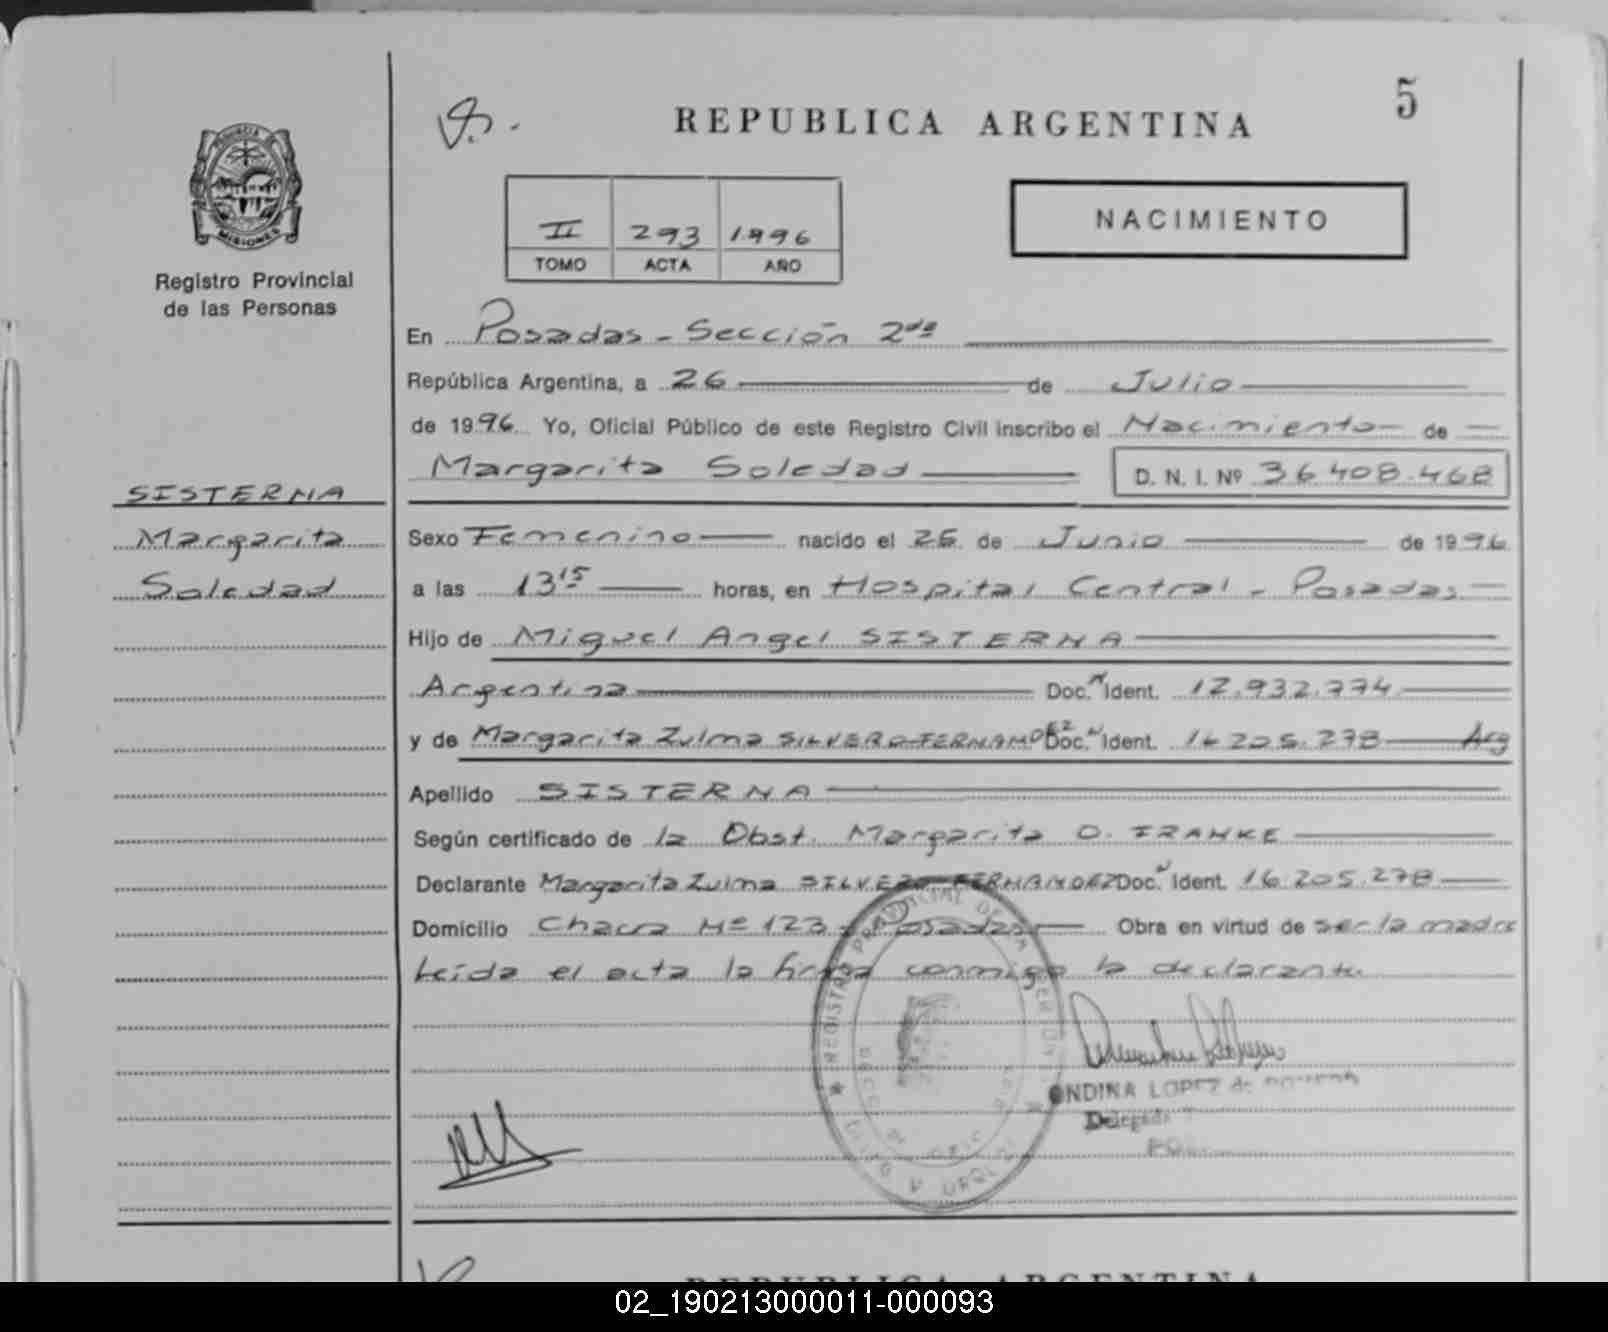 5
REPUBLICA ARGENTINA
PROVINCIA DE
MISIONES
Registro Provincial
de las Personas
II 293 1996
TOMO ACTA AÑO
NACIMIENTO
En Posadas - Sección 2da
República Argentina, a 26 de Julio
de 1996 Yo, Oficial Público de este Registro Civil inscribo el Nacimiento de
Margarita Soledad D. N. I. Nº 36.408.468
SISTERNA
Margarita
Soledad
Sexo Femenino nacido el 26 de Junio de 1996
a las 13 15 horas, en Hospital Central - Posadas
Hijo de Miguel Angel SISTERNA
Argentina Doc. Ident. 12.932.774
y de Margarita Zulma SILVERO FERNANDEZ Doc. Ident. 16.205.278 Arg
Apellido SISTERNA
Según certificado de la Obst. Margarita O. FRANKE
Declarante Margarita Zulma SILVERO FERNANDEZ Doc. Ident. 16.205.278
Domicilio Chacra Nº 123 - Posadas Obra en virtud de ser la madre
Leída el acta la firma conmigo la declarante.
REGISTRO PROVINCIAL DE LAS PERSONAS
ONDINA LOPEZ de
Delegada
REPUBLICA ARGENTINA
02_190213000011-000093